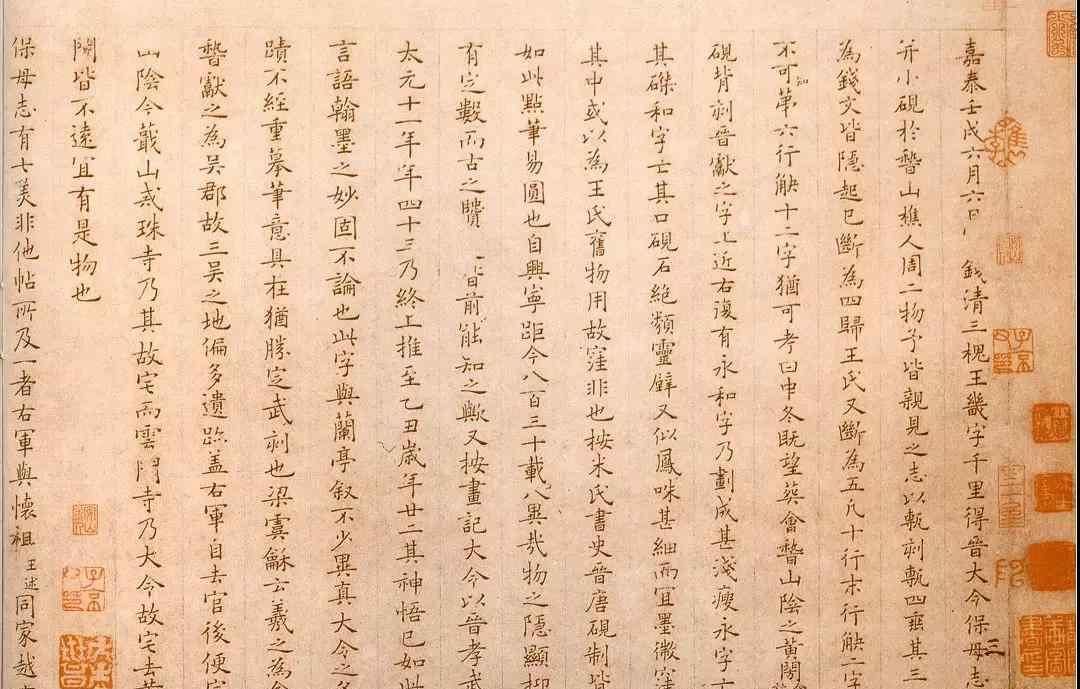 嘉泰壬戌六月六日 錢清三槐王畿字千里得晉大令保母志
并小硯於稽山樵人周二物予皆親見之志以甎刻甎四垂其三
為錢文皆隱起已斷為四歸王氏又斷為五凡十行末行缺二字
不可知第六行缺十二字猶可考曰中冬既望葬會稽山陰之黃閍
硯背刻晉獻之字上近右復有永和字乃劃成甚淺瘦永字
其磔和字亡其口硯石絕類靈壁又似鳳咮甚細而宜墨微窪
其中或以為王氏舊物用故窪非也按米氏書史晉唐硯制皆
如此點筆易圓也自興寧距今八百三十載八異哉物之隱顯抑
有定數而古之賢 皆前能知之歟又按畫記大令以晉孝武
太元十一年年四十三乃終上推至乙丑歲年廿二其神悟已如此
言語翰墨之妙固不論也此字與蘭亭叙不少異真大令之名
蹟不經重摹筆意具在猶勝定武刻也梁虞龢云羲之為會
稽獻之為吳郡故三吳之地偏多遺跡蓋右軍自去官後便家
山陰今蕺山戒珠寺乃其故宅而雲門寺乃大令故宅去黃
閍皆不遠宜有是物也
保母志有七美非他帖所及一者右軍與懷祖王述同家越